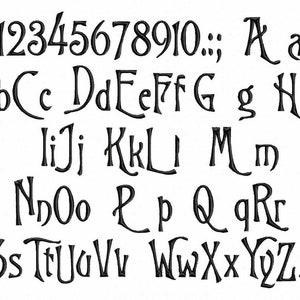 12345678910.:; A a
bCc DdEeFfG g H
IiJj KkLl M m
NnOo P p Q qRr
Ss TtUuVv WwXxYyZ